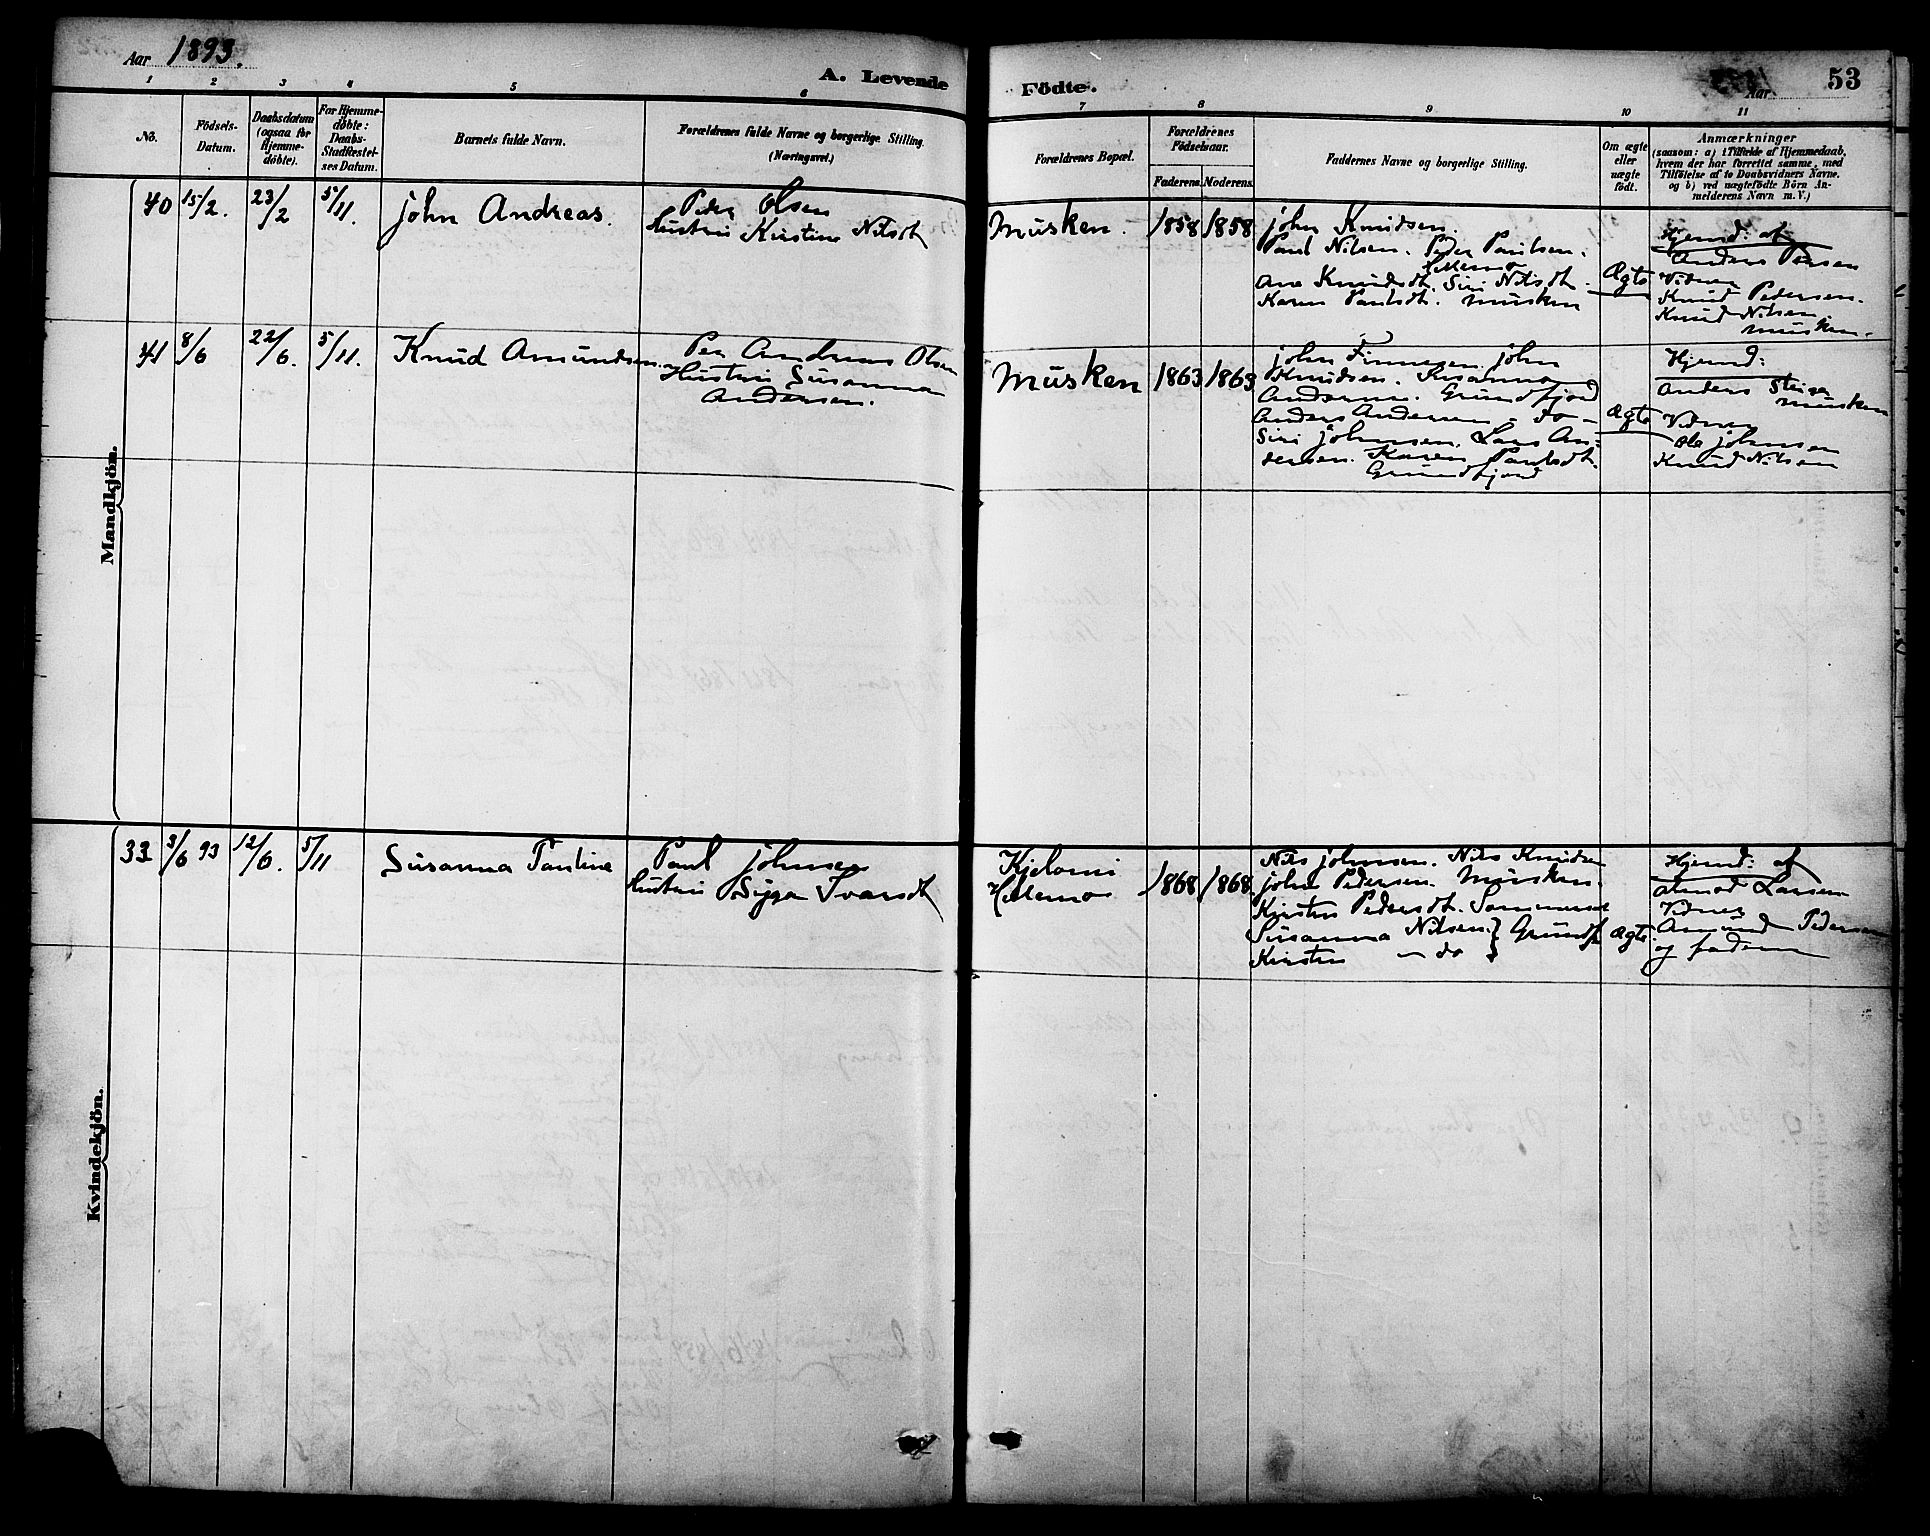 Aar 1893.
A. Levende Födte.
Aar 53
1 2 3 4 5 6 7 8 9 10 11
No.
Födsels-
Datum.
Daabsdatum
(ogsaa for
Hjemme-
döbte).
For Hjemme-
döbte:
Daabs-
Stadfæstel-
ses Datum.
Barnets fulde Navn.
Forældrenes fulde Navne og borgerlige Stilling.
(Næringsvei.)
Forældrenes Bopæl.
Forældrenes
Födselsaar.
Faderens. Moderens.
Faddernes Navne og borgerlige Stilling.
Om ægte
eller
uægte
födt.
Anmærkninger
(saasom: a) i Tilfælde af Hjemmedaab,
hvem der har forrettet samme, med
Tilföielse af to Daabsvidners Navne,
og b) ved uægtefödte Börn An-
melderens Navn m. V.)
Mandkjön.
40 15/2. 23/2 5/11. John Andreas.
Peder Olsen
Hustru Kirstine Nilsdt
Musken. 1858 1858
John Knudsen.
Paul Nilsen. Peder Paulsen.
Hellemo
Ane Knudsdt. Siri Nilsdt.
Karen Paulsdt. Musken
Ægte
Hjemd: af
Anders Persen
Vidner
Knud Pedersen.
Knud Nilsen
Musken.
41 8/6 22/6. 5/11. Knud Amundsen.
Per Andreas Olsen
Hustru Susanna
Andersen.
Musken 1863 1863
John Finnesen. John
Knudsen. Susanna
Andersen. Grundfjord
Anders Andersen – do –
Siri Johnsen. Lars An-
dersen. Karen Paulsdt.
Grundfjord
Ægte
Hjemd:
Anders
Musken
Vidner
Ole Johnsen
Knud Nilsen
Kvindekjön.
33 3/6 93 12/6. 5/11 Susanna Pauline
Paul Johnsen
Hustru Sigga Ivarsdt
Kjelomi
Hellemo
1868 1868
Nils Johnsen. Nils Knudsen
John Pedersen. Musken.
Kirsten Pedersdt. Sommerset
Susanna Nilsen } Grundf.
Kirsten – do }
Ægte
Hjemd: af
Larsen
Vidner
Amund Pedersen
og faderen